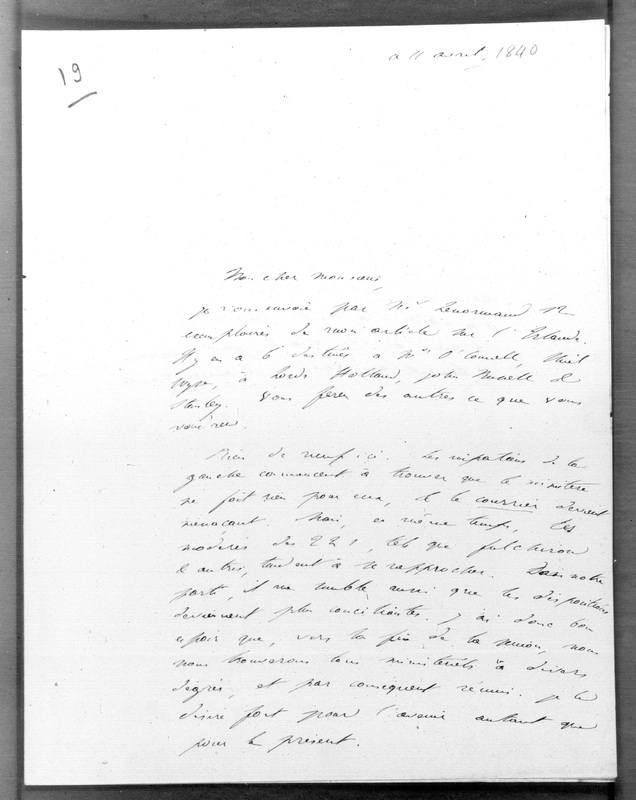 19
a 11 avril, 1840
Mon cher monsieur,
je vous envoie par Mr Lenormand 12
exemplaires de mon article sur l'Irlande.
Il y en a 6 destinés à Mrs O'Connell, Shiel
Wyse, à Lords Holland, john Russell &
Stanley. Vous ferez des autres ce que vous
voudrez.
Rien de neuf ici. Les impatiens de la
gauche commencent à trouver que le ministère
ne fait rien pour eux, & le courrier devient
menaçant. Mais, en même temps, les
modérés des 221, tels que fulchiron
& autres, tendent à se rapprocher. Dans notre
parti, il me semble aussi que les dispositions
deviennent plus conciliantes. J'ai donc bon
espoir que, vers la fin de la session, nous
nous trouverons tous ministériels à divers
degrés, et par conséquent réunis. je le
désire fort pour l'avenir autant que
pour le présent.